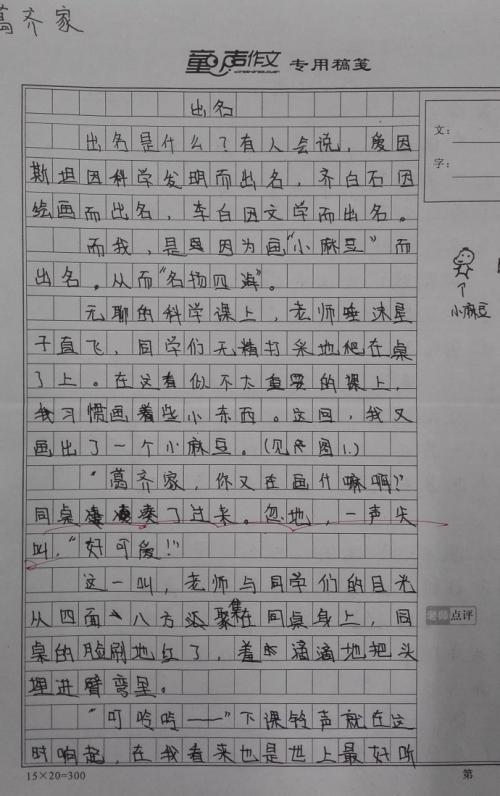 葛齐家
童声作文 专用稿笺
出名
出名是什么？有人会说，爱因
斯坦因科学发明而出名，齐白石因
绘画而出名，李白因文学而出名。
而我，是因为画“小麻豆”而
出名。从而“名扬四海”。
无聊的科学课上，老师唾沫星
子直飞，同学们无精打采地爬在桌
了上。在这看似不太重要的课上，
我习惯画着些小东西。这回，我又
画出了一个小麻豆。（见图1.）
“葛齐家，你又在画什嘛啊？”
同桌凑了过来。忽地，一声尖
叫，“好可爱！”
这一叫，老师与同学们的目光
从四面八方聚集在同桌身上，同
桌的脸刷地红了，羞滴滴地把头
埋进臂弯里。
“叮呤呤——”下课铃声就在这
时响起，在我看来也是世上最好听
15×20=300
第
文：
字：
小麻豆
老师点评